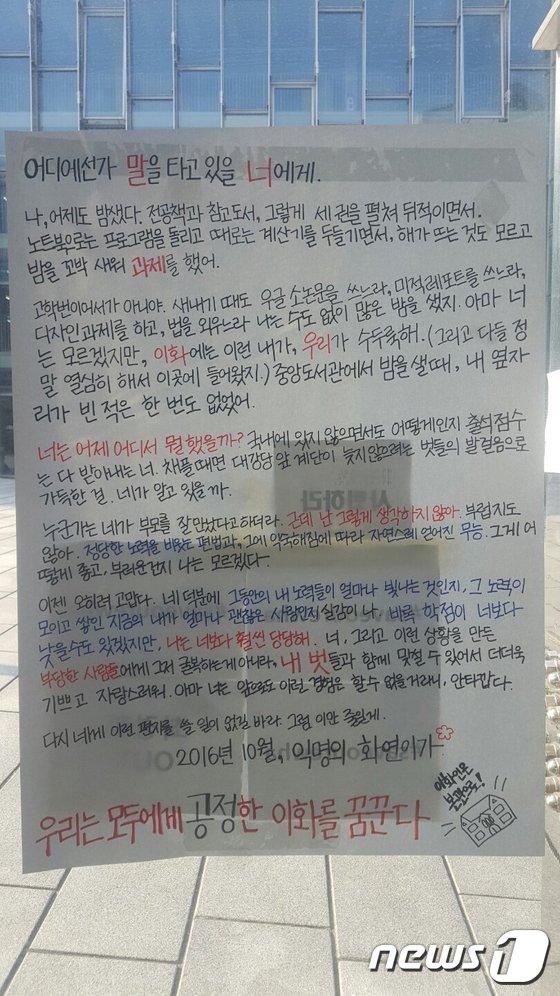 어디에선가 말을 타고 있을 너에게.
나, 어제도 밤샜다. 전공책과 참고도서, 그렇게 세 권을 펼쳐 뒤적이면서.
노트북으로는 프로그램을 돌리고 때로는 계산기를 두들기면서, 해가 뜨는 것도 모르고
밤을 꼬박 새워 과제를 했어.
고학번이어서가 아니야. 새내기 때도 우글 소논문을 쓰느라, 미적레포트를 쓰느라,
디자인 과제를 하고, 법을 외우느라 나는 수도 없이 많은 밤을 샜지. 아마 너
는 모르겠지만, 이화에는 이런 내가, 우리가 수두룩해. (그리고 다들 정
말 열심히 해서 이곳에 들어왔지.) 중앙도서관에서 밤을 샐 때, 내 옆자
리가 빈 적은 한 번도 없었어.
너는 어제 어디서 뭘 했을까? 국내에 있지 않으면서도 어떻게인지 출석점수
는 다 받아내는 너. 채플 때면 대강당 앞 계단이 늦지 않으려는 벗들의 발걸음으로
가득한 걸. 네가 알고 있을까.
누군가는 네가 부모를 잘 만났다고 하더라. 근데 난 그렇게 생각하지 않아. 부럽지도
않아. 정당한 노력을 비웃는 편법과, 그에 익숙해짐에 따라 자연스레 얻어진 무능. 그게 어
떻게 좋고, 부러운건지 나는 모르겠다.
이젠 오히려 고맙다. 네 덕분에 그동안의 내 노력들이 얼마나 빛나는 것인지, 그 노력이
모이고 쌓인 지금의 내가 얼마나 괜찮은 사람인지 실감이 나. 비록 학점이 너보다
낮을수도 있겠지만, 나는 너보다 훨씬 당당해. 너, 그리고 이런 상황을 만든
부당한 사람들에게 그저 굴복하는게 아니라, 내 벗들과 함께 맞설 수 있어서 더더욱
기쁘고 자랑스러워. 아마 너는 앞으로도 이런 경험은 할 수 없을거라니, 안타깝다.
다시 네게 이런 편지를 쓸 일이 없길 바라. 그럼 이만 줄일게.
2016년 10월, 익명의 화연이가
이화인은
본관으로!
우리는 모두에게 공정한 이화를 꿈꾼다
news1